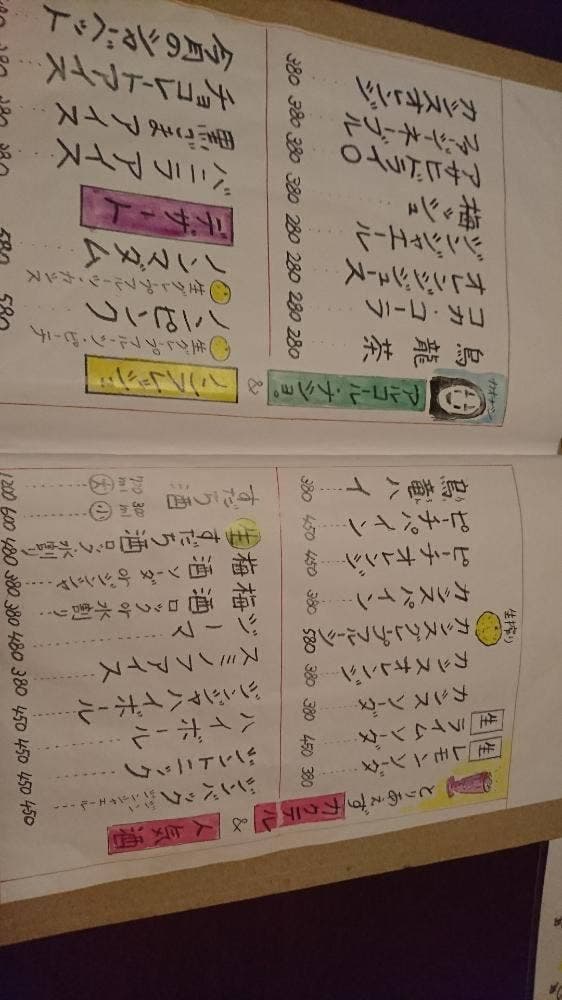 とりあえず
カクテル & 人気酒
生 レモンソーダ 380
生 ライムソーダ 450
カシスソーダ 380
カシスオレンジ 380
生搾り
カシスグレプフルーツ 580
カシスパイン 380
ピーチオレンジ 450
ピーチパイン 450
烏龍ハイ 380
ジンバック ジンジャエール 450
ジントニック 450
ハイボール 450
ジンジャハイボール 450
スミノフアイス 380
ジーマ 480
梅酒 ロック or 水割り 380
梅酒 ソーダ or ジンジャ 380
生すだち酒 ロック 水割り 480
すだち酒 80ml 小 600
720ml 大 1200
カオナシ
アルコール・ナシ。 &
烏龍茶 280
コカ・コーラ 280
オレンジジュース 280
ジンジャエール 280
梅ジュ 380
アサヒドライ0 380
ファジーネーブル 380
カシスオレンジ 380
ノンピンク 580
生グレプフルーツ・ピーチ
ノンマダム 580
生グレプフルーツ・カシス
デザート
バニラアイス 380
黒ごまアイス 380
チョコレートアイス 380
今月のシャーベット 380